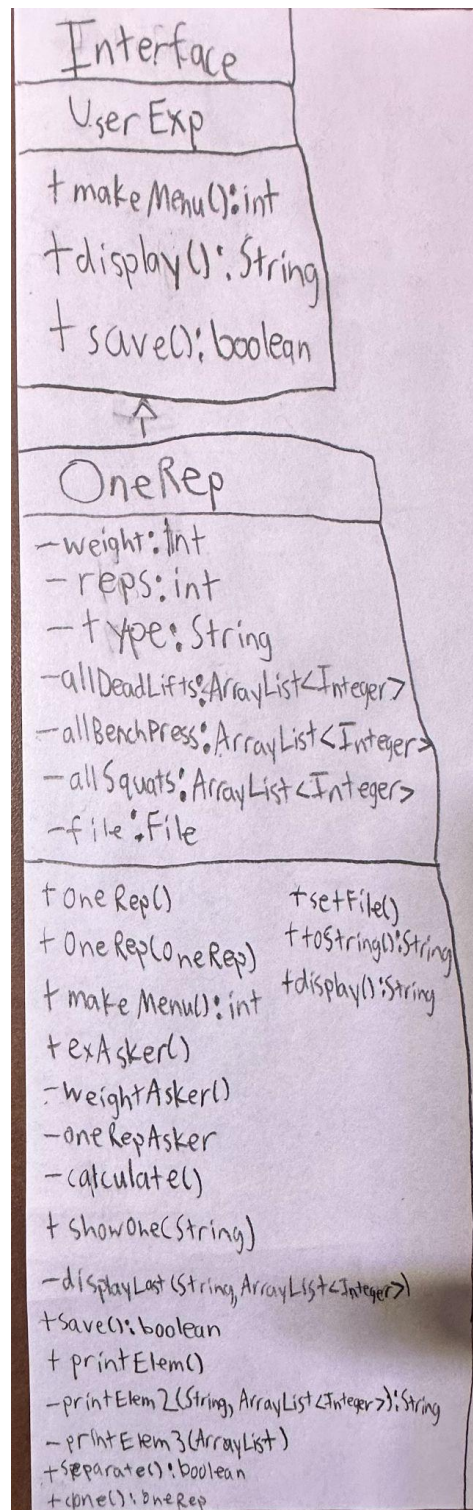 Interface
UserExp
+ makeMenu():int
+display():String
+ save():boolean
OneRep
-weight:int
-reps:int
-type:String
-allDeadLifts:ArrayList<Integer>
-allBenchPress:ArrayList<Integer>
-allSquats:ArrayList<Integer>
-file:File
+ OneRep()
+ OneRep(OneRep)
+ makeMenu():int
+exAsker()
-weightAsker()
-oneRepAsker
-calculate()
+ showOne(String)
-displayLast(String,ArrayList<Integer>)
+save():boolean
+ printElem()
-printElem2(String, ArrayList<Integer>):String
-printElem3(ArrayList)
+separate():boolean
+clone():OneRep
+setFile()
+toString():String
+display():String